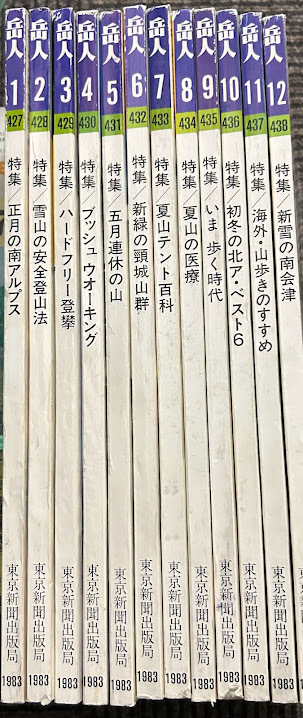 岳人
1
427
特集/正月の南アルプス
東京新聞出版局
1983
岳人
2
428
特集/雪山の安全登山法
東京新聞出版局
1983
岳人
3
429
特集/ハードフリー登攀
東京新聞出版局
1983
岳人
4
430
特集/ブッシュウオーキング
東京新聞出版局
1983
岳人
5
431
特集/五月連休の山
東京新聞出版局
1983
岳人
6
432
特集/新緑の頸城山群
東京新聞出版局
1983
岳人
7
433
特集/夏山テント百科
東京新聞出版局
1983
岳人
8
434
特集/夏山の医療
東京新聞出版局
1983
岳人
9
435
特集/いま歩く時代
東京新聞出版局
1983
岳人
10
436
特集/初冬の北ア・ベスト6
東京新聞出版局
1983
岳人
11
437
特集/海外・山歩きのすすめ
東京新聞出版局
1983
岳人
12
438
特集/新雪の南会津
東京新聞出版局
1983